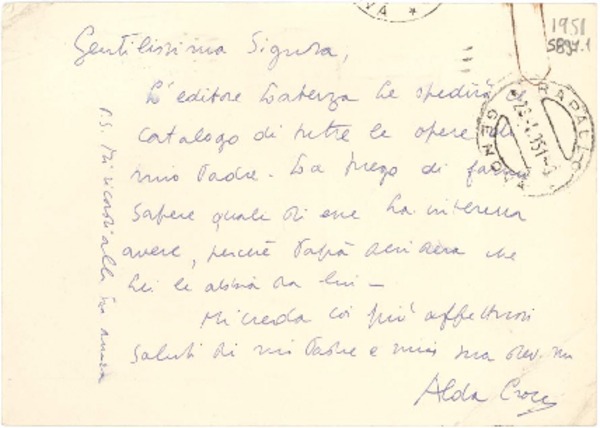 VA *
1951
5894.1
RAPALLO
GENOVA
Gentilissima Signora,
L'editore Laterza Le spedirà il
catalogo di tutte le opere di
mio Padre. La prego di farmi
sapere quale di esse La interessa
avere, perché Papà desidera che
Lei le abbia da lui -
Mi creda coi più affettuosi
saluti di mio Padre e miei sua dev.ma
Alda Croce
P.S. Mi ricordi alla